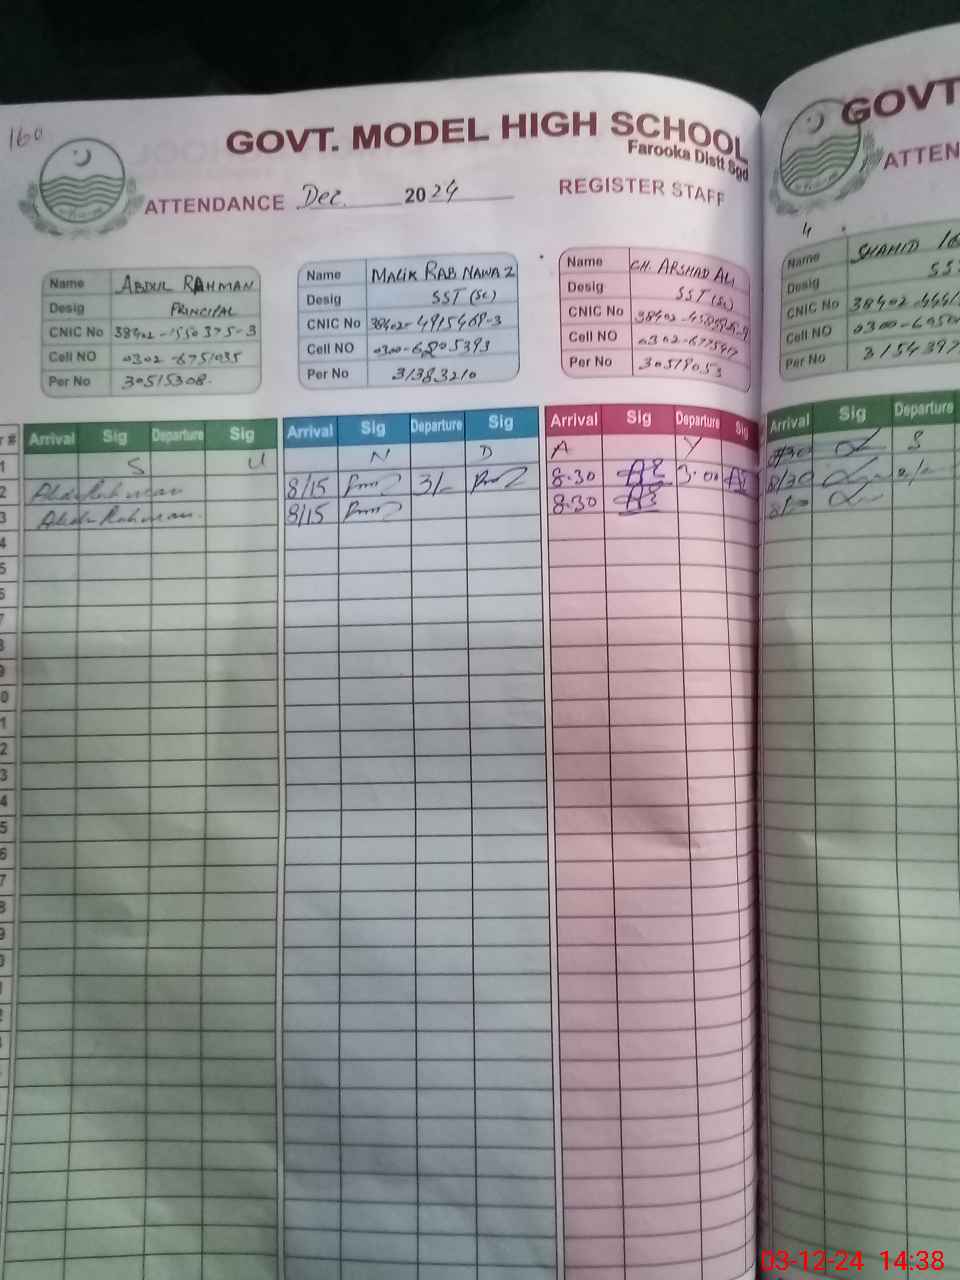 160
GOVT. MODEL HIGH SCHOOL
Farooka Distt Sgd
ATTENDANCE Dec. 2024 REGISTER STAFF
Name ABDUL RAHMAN
Desig PRINCIPAL
CNIC No 38402-1550375-3
Cell NO 0302-6751035
Per No 30515308-
Name MALIK RAB NAWAZ
Desig SST (Sc)
CNIC No 38402-4915468-3
Cell NO 0300-6805393
Per No 31383210
Name CH. ARSHAD ALI
Desig SST (Sc)
CNIC No 38402-
Cell NO 0302-
Per No 30519053
Arrival Sig Departure Sig Arrival Sig Departure Sig Arrival Sig Departure Sig
1 S U N D A Y
2 Abdul Rahman 8/15 3/- 8.30 3.00
3 Abdul Rahman 8/15 8.30
4
5
6
7
8
9
0
1
2
3
4
5
6
7
8
9
0
GOVT
ATTEN
4
Name SHAHID
Desig SS
CNIC No 38402-
Cell NO 0300-
Per No 3154397
Arrival Sig Departure
S
8/30
03-12-24 14:38